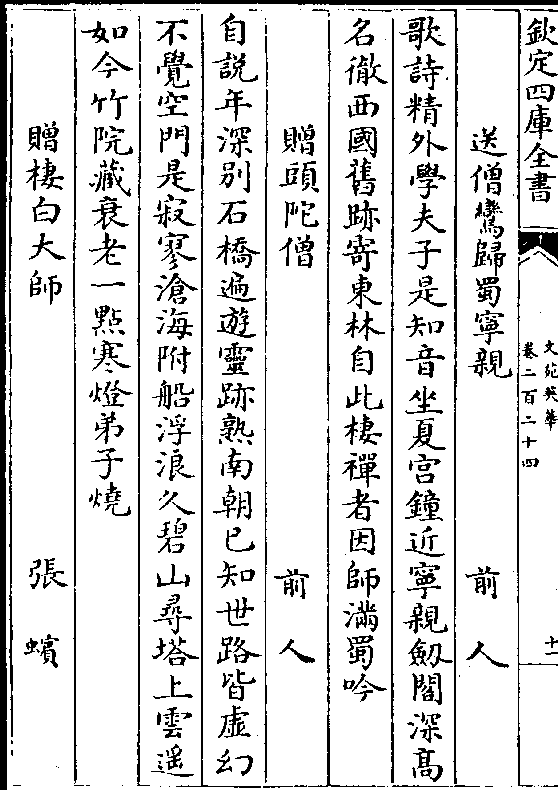 欽定四庫全書
文苑英華
卷二百二十四
十一
送僧鸞歸蜀寧親 前人
歌詩精外學夫子是知音坐夏宫鐘近寧親劔閣深髙
名徹西國舊跡寄東林自此棲禪者因師滿蜀吟
贈頭陀僧 前人
自説年深别石橋遍遊靈跡熟南朝已知世路皆虚幻
不覺空門是寂寥滄海附船浮浪久碧山尋塔上雲遥
如今竹院藏衰老一點寒燈弟子燒
贈棲白大師 張蠙